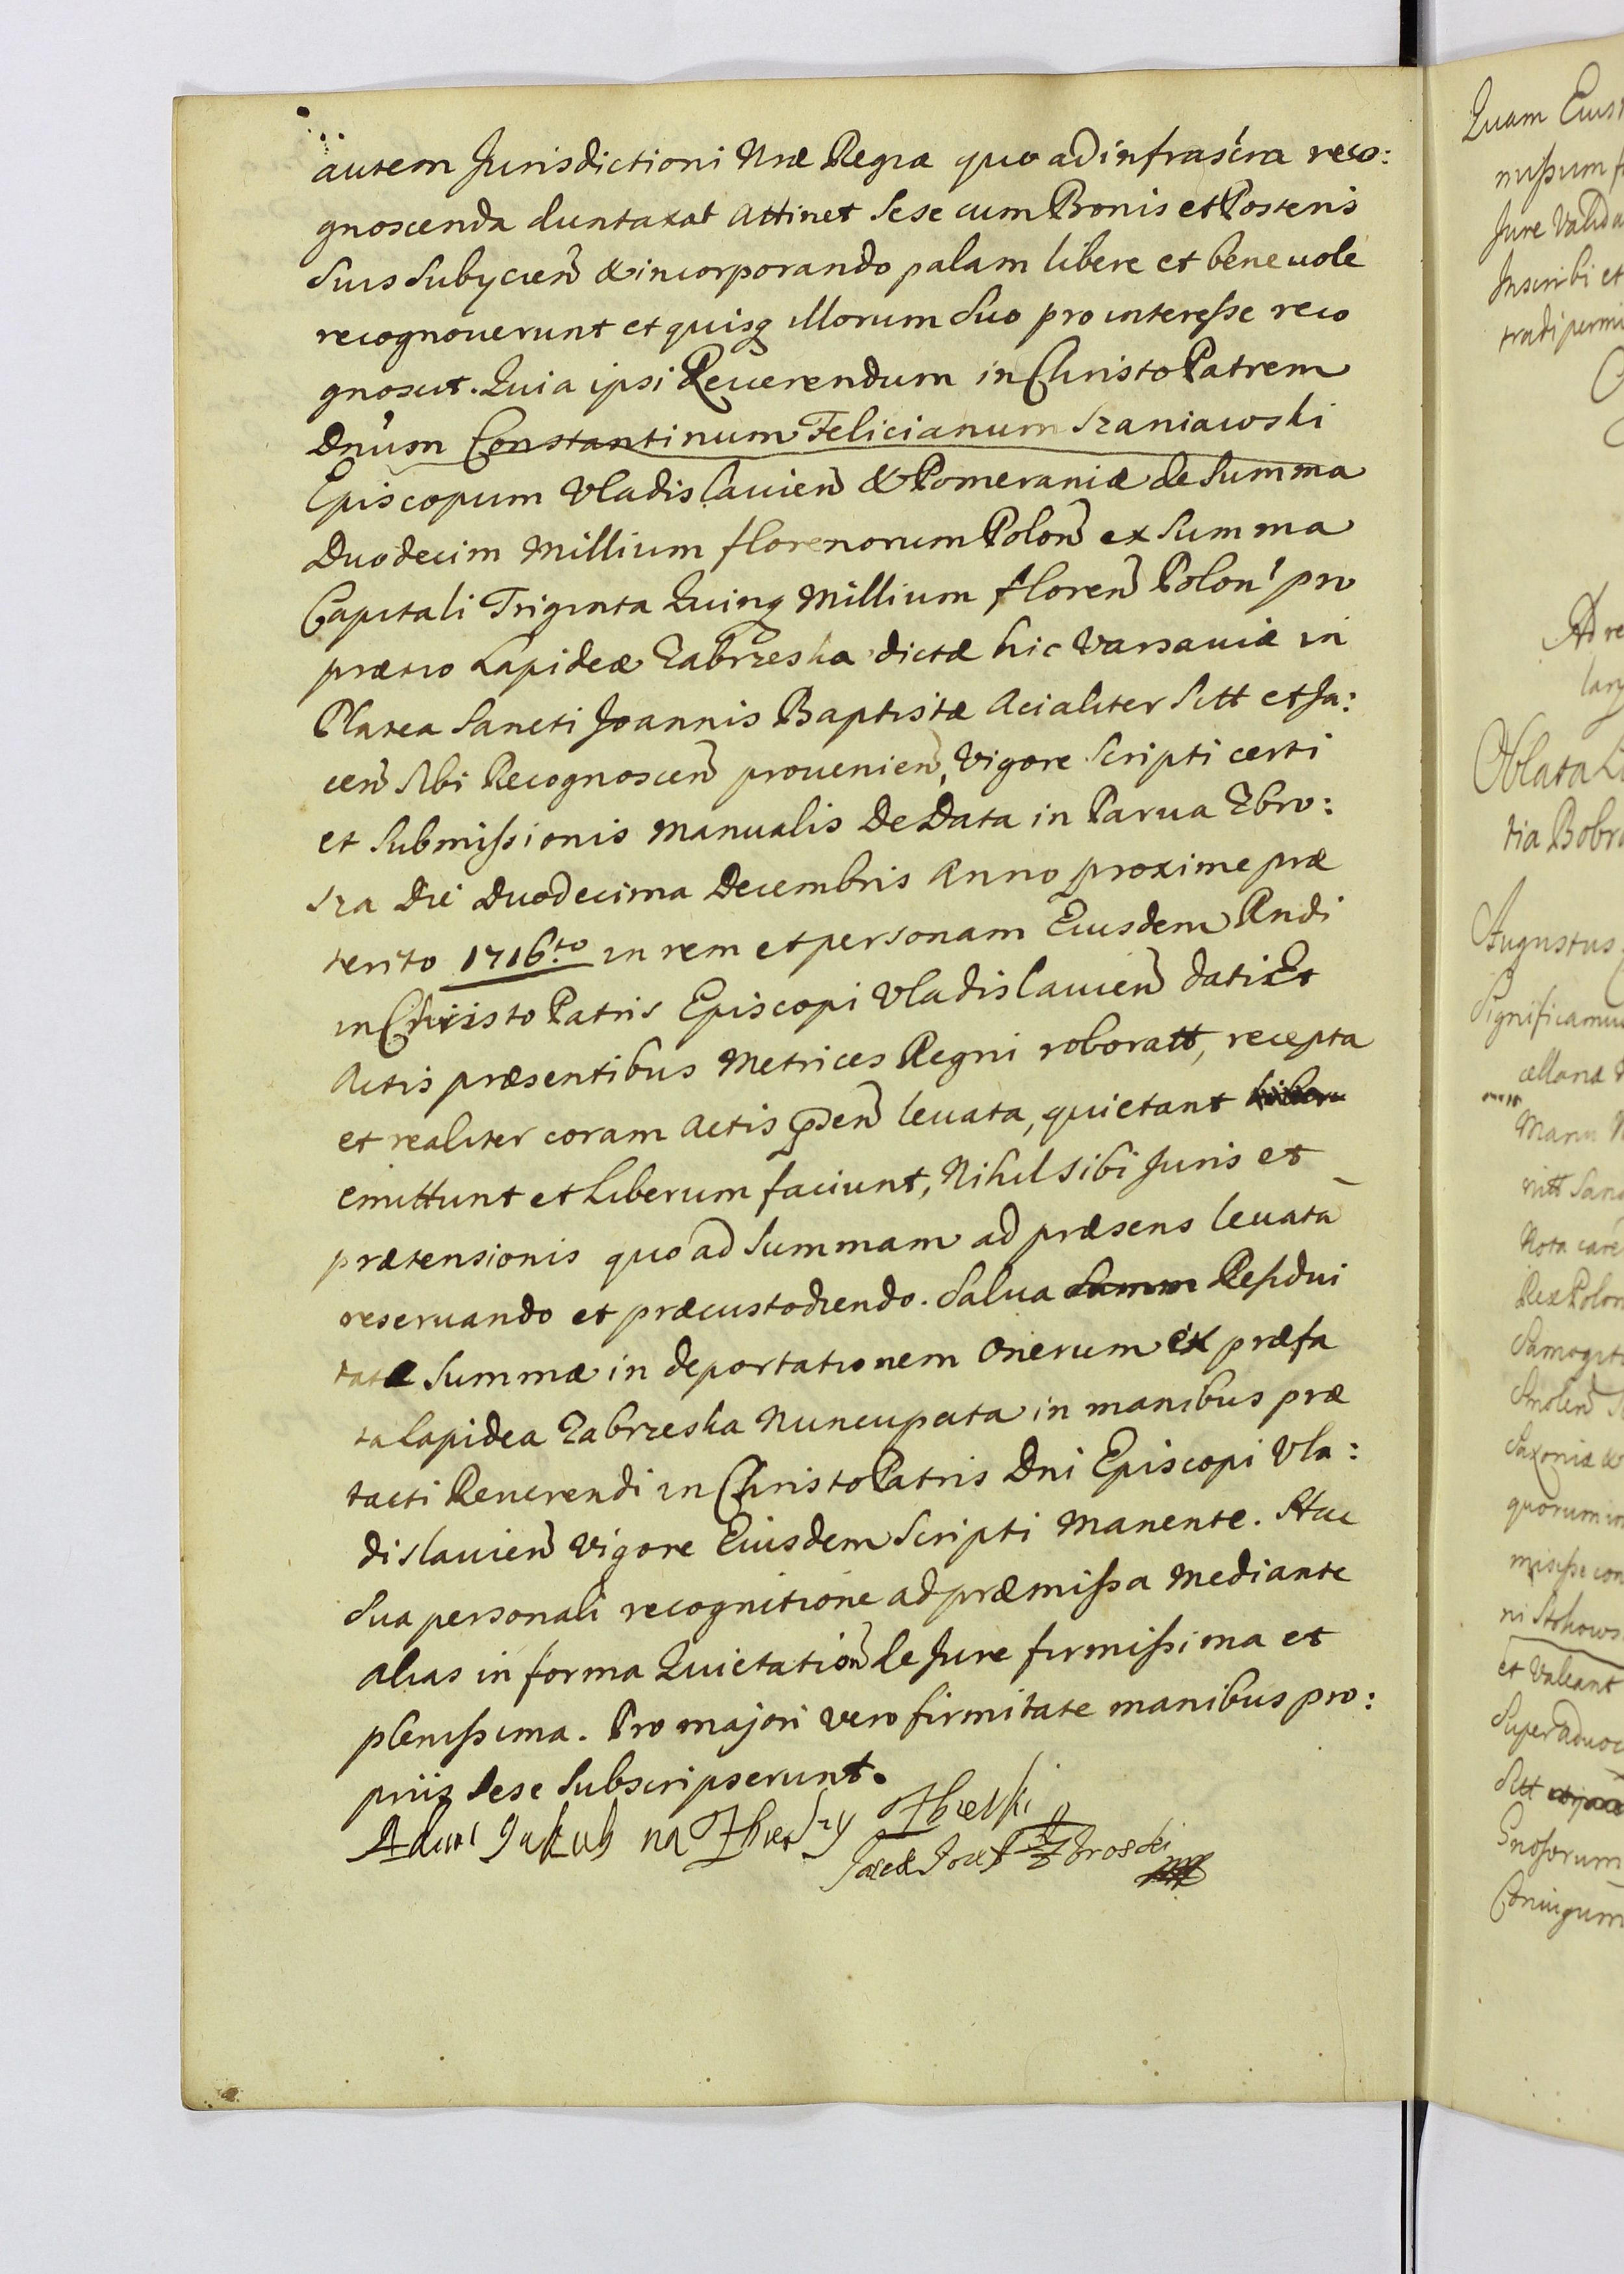 autem Jurisdictioni Nræ Regiæ quo ad infrascra reco:
gnoscenda duntaxat Attinet Sese cum Bonis et Posteris
Suis Subycien & incorporando palam libere et beneuole
recognouerunt et quisq illorum Suo pro interesse reco
gnoscit. Quia ipsi Reuerendum in Christo Patrem
Dnum Constantinum Felicianum Szaniawski
Episcopum Vladislauien & Pomeraniæ de Summa
Duodecim Millium florenorum Polon ex Summa
Capitali Triginta Quinq Millium floren Polon pro
prætio Lapideæ Zabrzeska dictæ hic Varsauiæ in
Platea Sancti Joannis Baptistæ Acialiter Sitt et Ja:
cen Sibi Recognoscen prouenien, Vigore Scripti certi
et Submissionis Manualis De Data in Parua Zbro:
sza Die Duodecima Decembris Anno proxime præ
terito 1716.to in rem et personam Eiusdem Rndi
in Christo Patris Episcopi Vladislauien dati Et
Actis præsentibus Metrices Regni roboratt, recepta
et realiter coram Actis pñen leuata, quietant
emittunt et Liberum faciunt, Nihil sibi Juris et
prætensionis quo ad Summam ad præsens leuata
reseruando et præcustodiendo. Salua Summ Residui
tatæ Summæ in deportationem Onerum ex præfa
ta Lapidea Zabrzeska Nuncupata in manibus præ
tacti Reuerendi in Christo Patris Dni Episcopi Vla:
dislauien Vigore Eiusdem Scripti Manente. Hac
Sua personali recognitione ad præmissa Mediante
alias in forma Quietation de Jure firmissima et
plenissima. Pro majori vero firmitate manibus pro:
priis Sese Subscripserunt.
Adam Jakub na
Quam
missum
Jure Valida
Inscribi et
tradi permi
Ad re
Oblata
tia Bobro
Augustus
Significamus
cellariæ
Nota care
Rex Polon
Samogiti
Smolen
Saxoniæ &
quorum in
misisse con
et Valeant
Super aduoc
Sitt
Coniugum